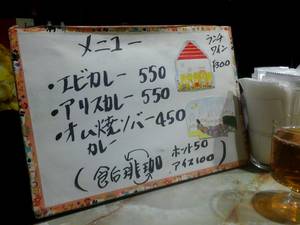 メニュー
・エビカレー 550
・アリスカレー 550
・オム焼ソバー 450
カレー
(食后珈琲 ホット50
アイス100)
ランチ
ワイン
¥300